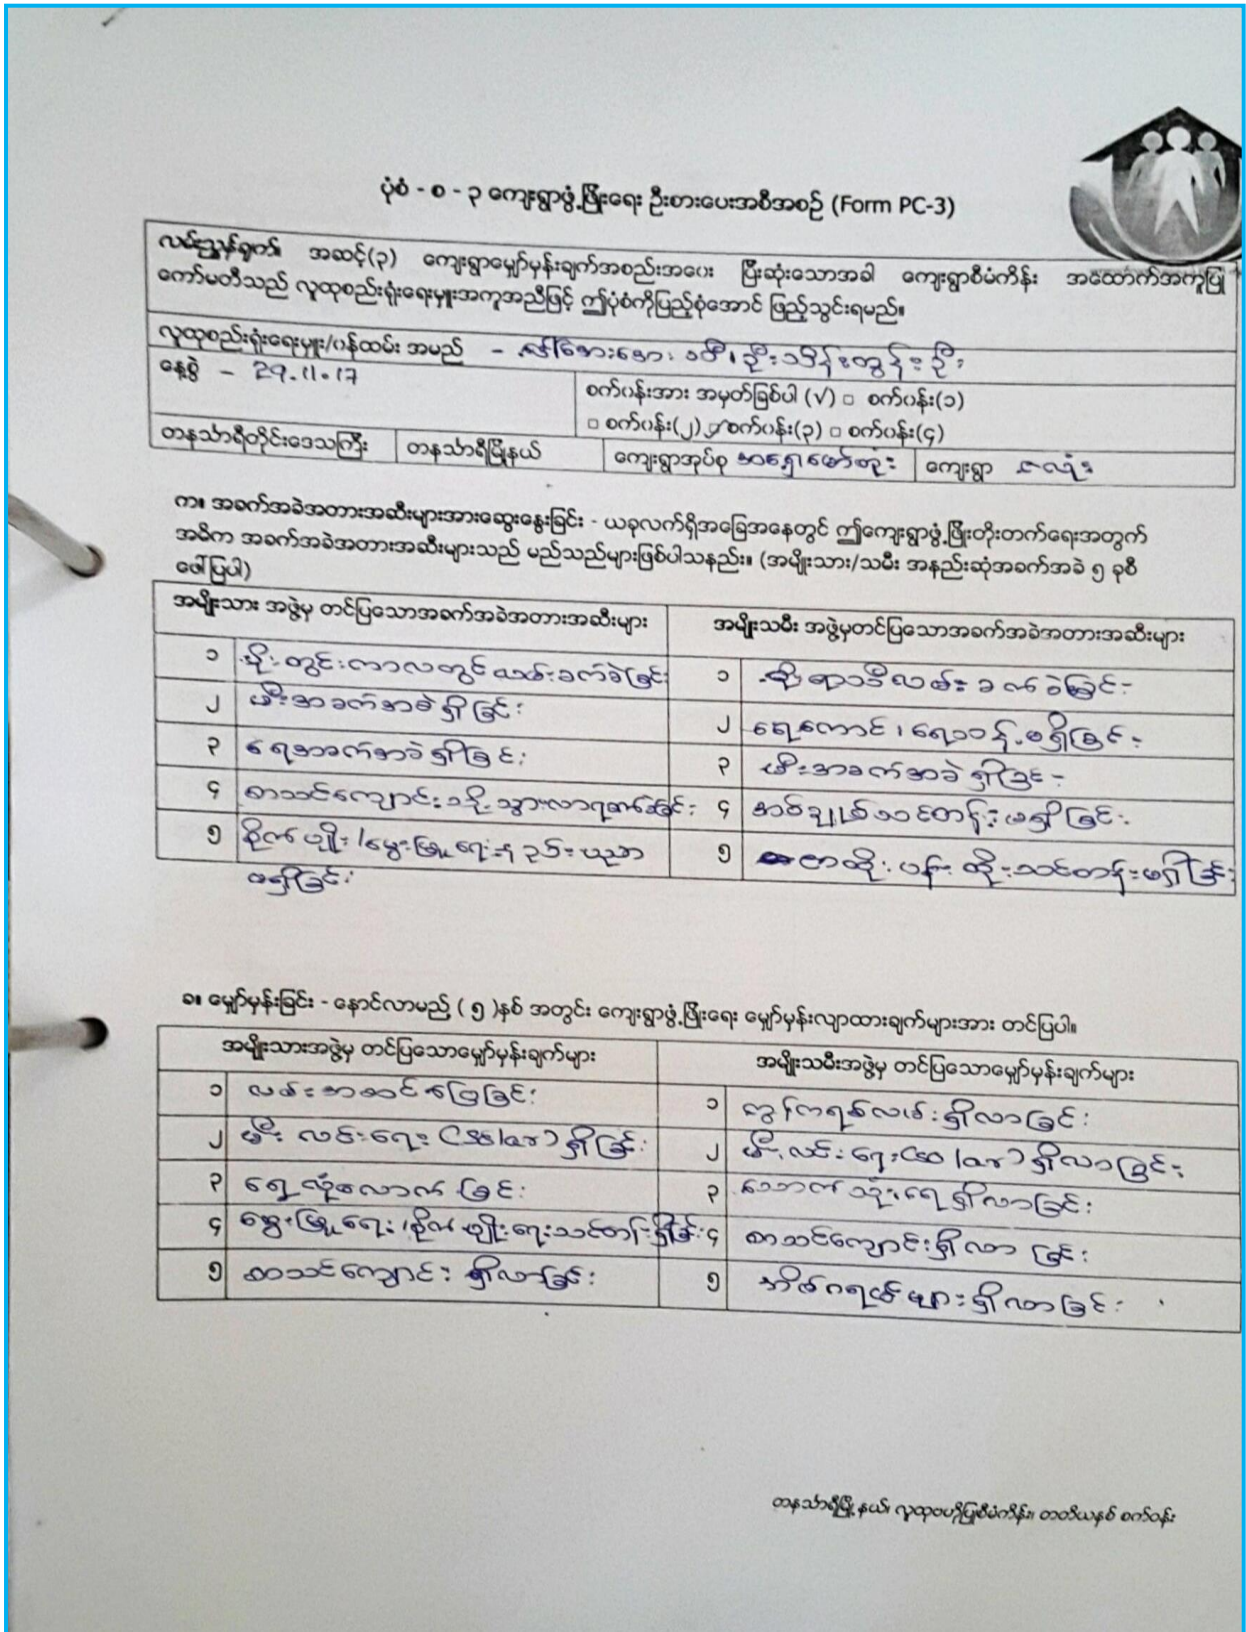 ပုံစံ - စ - ၃ ကျေးရွာဖွံ့ဖြိုးရေး ဦးစားပေးအစီအစဉ် (Form PC-3)
လမ်းညွှန်ချက်။ အဆင့်(၃) ကျေးရွာမျှော်မှန်းချက်အစည်းအဝေး ပြီးဆုံးသောအခါ ကျေးရွာစီမံကိန်း အထောက်အကူပြု
ကော်မတီသည် လူထုစည်းရုံးရေးမှူးအကူအညီဖြင့် ဤပုံစံကိုပြည့်စုံအောင် ဖြည့်သွင်းရမည်။
လူထုစည်းရုံးရေးမှူး/ဝန်ထမ်း အမည် - ဦးသိန်းထွန်းဦး
နေ့စွဲ - 29.11.17
စက်ဝန်းအား အမှတ်ခြစ်ပါ (√) □ စက်ဝန်း(၁)
□ စက်ဝန်း(၂) ☑ စက်ဝန်း(၃) □ စက်ဝန်း(၄)
တနင်္သာရီတိုင်းဒေသကြီး တနင်္သာရီမြို့နယ် ကျေးရွာအုပ်စု ကျေးရွာ
က။ အခက်အခဲအတားအဆီးများအားဆွေးနွေးခြင်း - ယခုလက်ရှိအခြေအနေတွင် ဤကျေးရွာဖွံ့ဖြိုးတိုးတက်ရေးအတွက်
အဓိက အခက်အခဲအတားအဆီးများသည် မည်သည်များဖြစ်ပါသနည်း။ (အမျိုးသား/သမီး အနည်းဆုံအခက်အခဲ ၅ ခုစီ
ဖေါ်ပြပါ)
အမျိုးသား အဖွဲ့မှ တင်ပြသောအခက်အခဲအတားအဆီးများ အမျိုးသမီး အဖွဲ့မှတင်ပြသောအခက်အခဲအတားအဆီးများ
၁ မိုးတွင်းကာလတွင်လမ်းခက်ခဲခြင်း ၁ မိုးရာသီလမ်းခက်ခဲခြင်း
၂ မီးအခက်အခဲရှိခြင်း ၂ ရေကောင်း ရေသန့်မရှိခြင်း
၃ ရေအခက်အခဲရှိခြင်း ၃ မီးအခက်အခဲရှိခြင်း
၄ စာသင်ကျောင်းသို့သွားလာရခက်ခြင်း ၄ အပ်ချုပ်သင်တန်းမရှိခြင်း
၅ စိုက်ပျိုး/မွေးမြူရေးနည်းပညာ ၅ ဇာထိုး ပန်းထိုးသင်တန်းမရှိခြင်း
မရှိခြင်း
ခ။ မျှော်မှန်းခြင်း - နောင်လာမည့် ( ၅ )နှစ် အတွင်း ကျေးရွာဖွံ့ဖြိုးရေး မျှော်မှန်းလျာထားချက်များအား တင်ပြပါ။
အမျိုးသားအဖွဲ့မှ တင်ပြသောမျှော်မှန်းချက်များ အမျိုးသမီးအဖွဲ့မှ တင်ပြသောမျှော်မှန်းချက်များ
၁ လမ်းအဆင်ပြေခြင်း ၁ ကွန်ကရစ်လမ်းရှိလာခြင်း
၂ မီးလင်းရေး (Solar) ရှိခြင်း ၂ မီးလင်းရေး (solar) ရှိလာခြင်း
၃ ရေလုံလောက်ခြင်း ၃ သောက်သုံးရေရှိလာခြင်း
၄ မွေးမြူရေး/စိုက်ပျိုးရေးသင်တန်းရှိခြင်း ၄ စာသင်ကျောင်းရှိလာခြင်း
၅ စာသင်ကျောင်းရှိလာခြင်း ၅ ရှိလာခြင်း
တနင်္သာရီမြို့နယ်၊ လူထုဗဟိုပြုစီမံကိန်း၊ တတိယနှစ် စက်ဝန်း